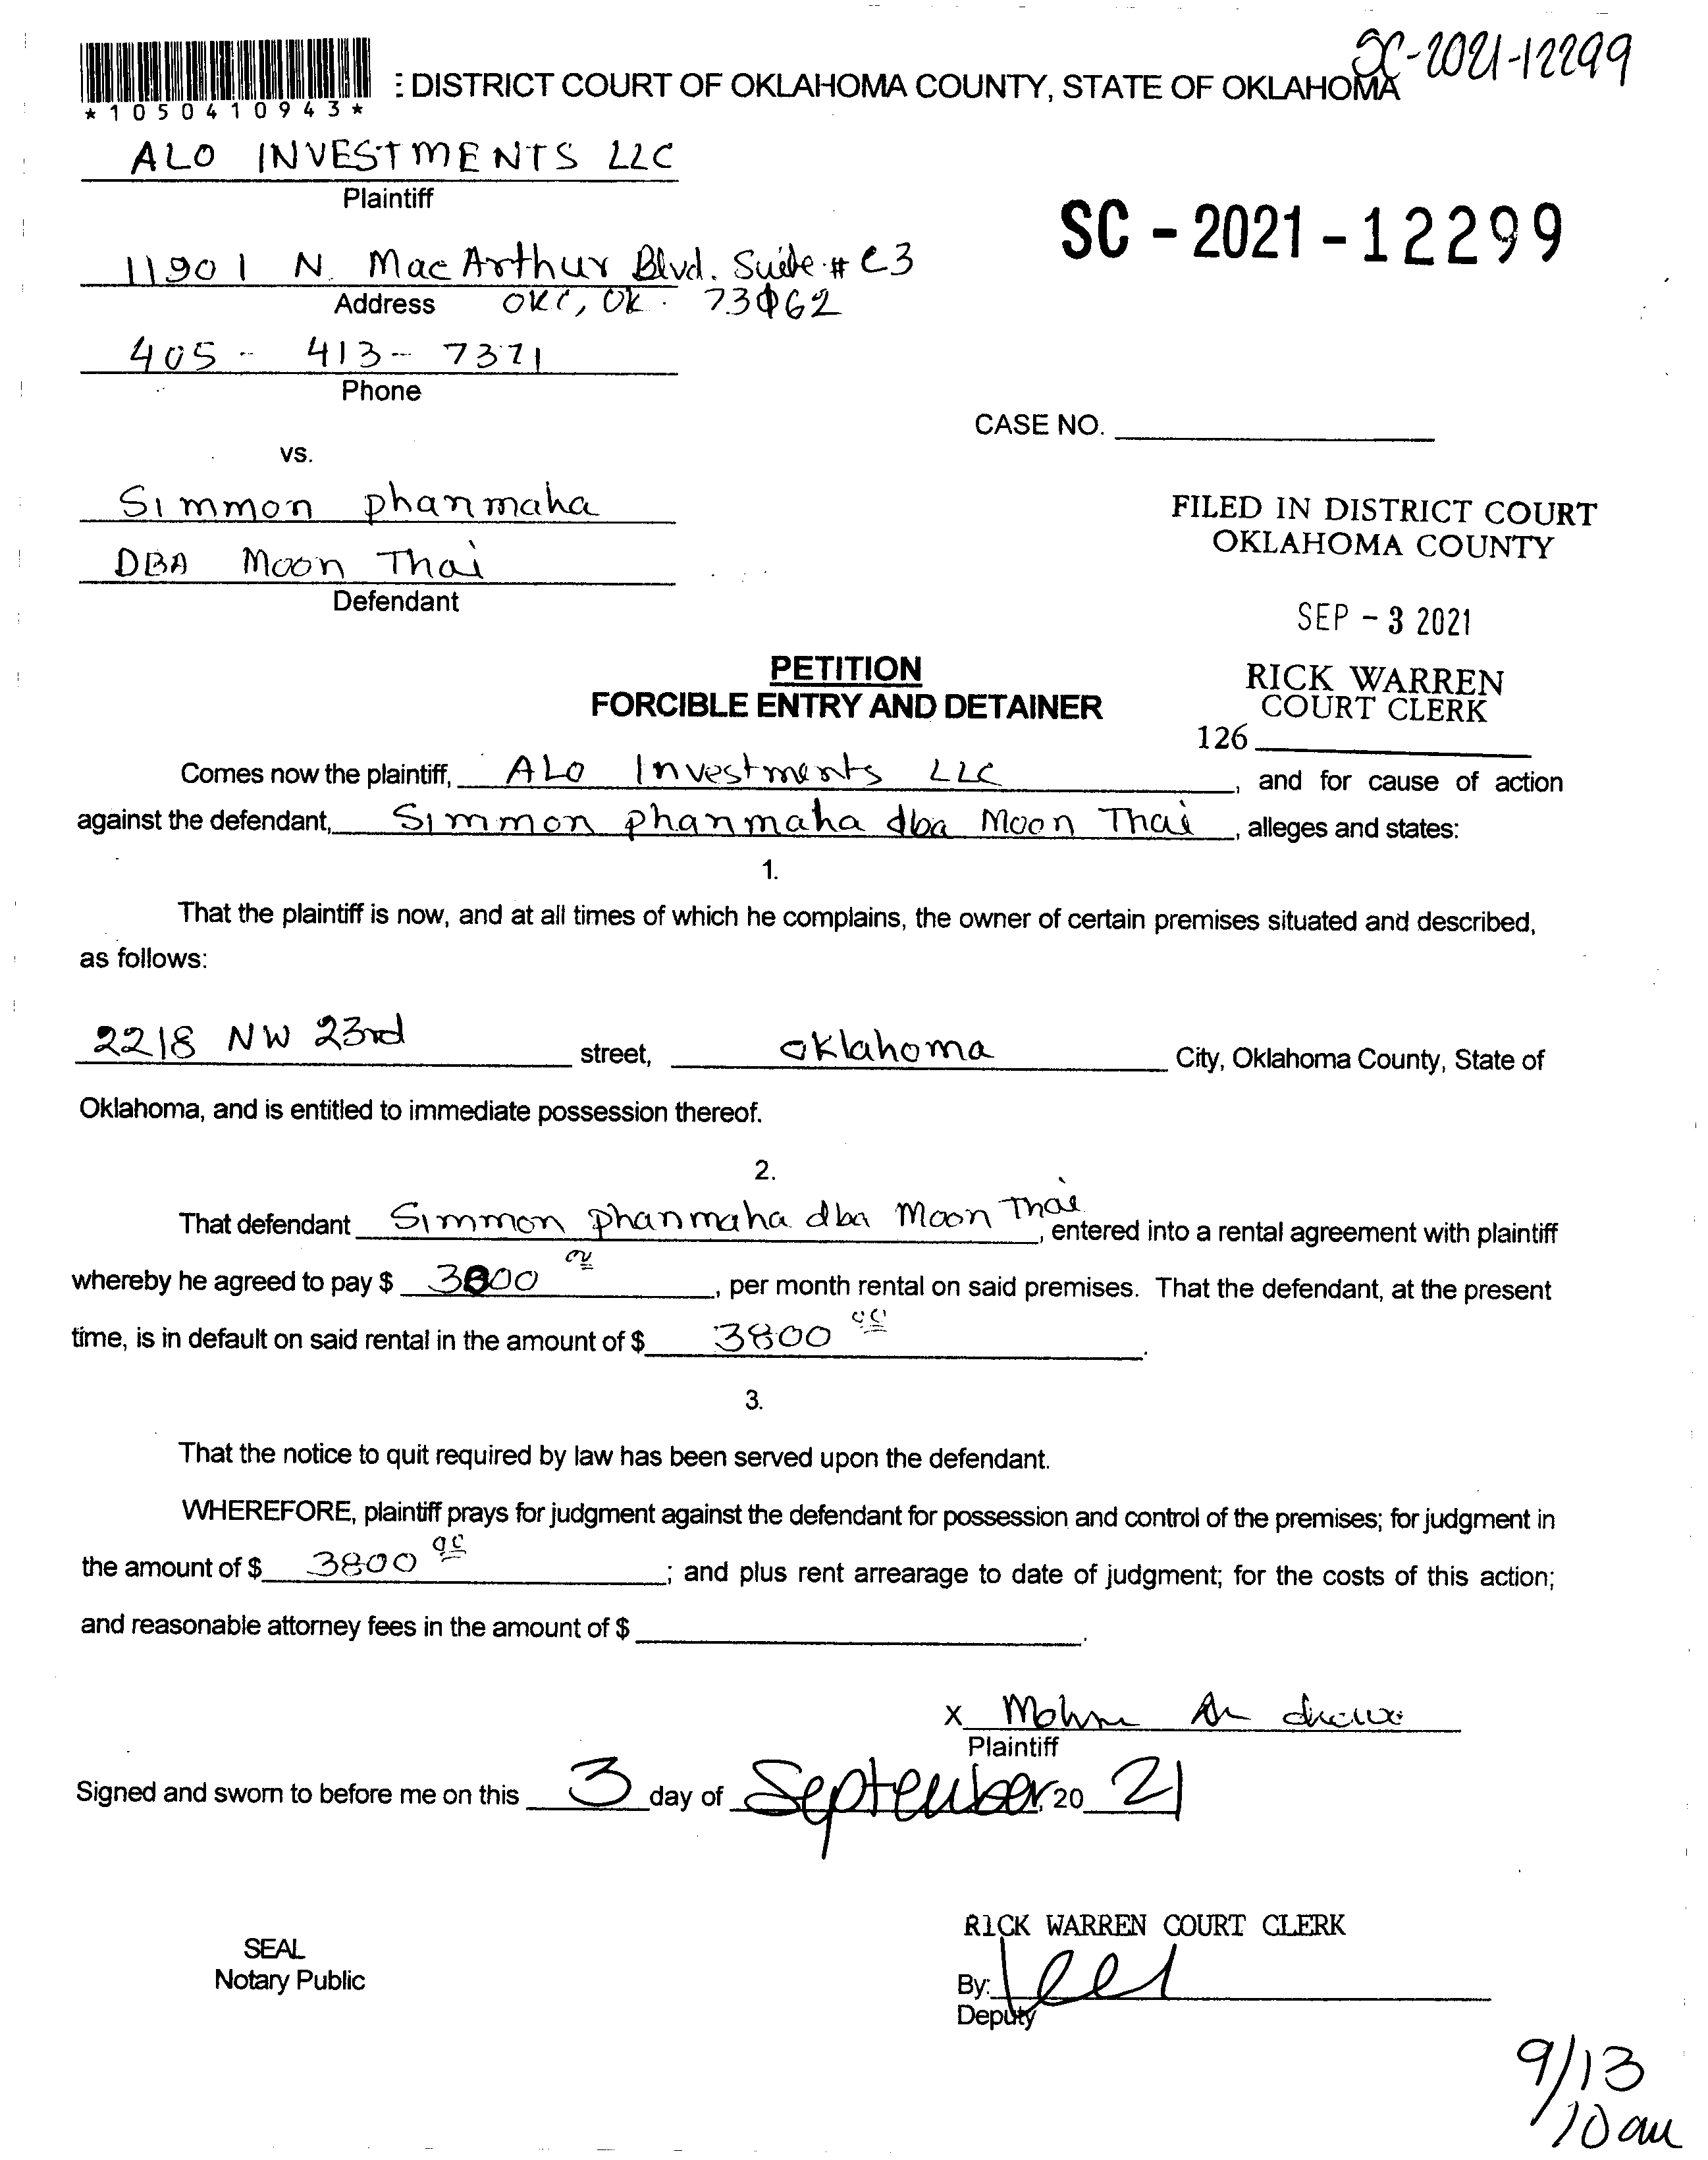 SC-2021-12299
*1050410943*
: DISTRICT COURT OF OKLAHOMA COUNTY, STATE OF OKLAHOMA
ALO INVESTMENTS LLC
Plaintiff
SC - 2021 - 12299
11901 N. MacArthur Blvd. Suite # C3
Address OKC, OK. 73062
405 - 413 - 7371
Phone
CASE NO.
vs.
Simmon phanmaha
DBA Moon Thai
Defendant
FILED IN DISTRICT COURT
OKLAHOMA COUNTY
SEP - 3 2021
RICK WARREN
COURT CLERK
126
PETITION
FORCIBLE ENTRY AND DETAINER
Comes now the plaintiff, ALO Investments LLC, and for cause of action
against the defendant, Simmon phanmaha dba Moon Thai, alleges and states:
1.
That the plaintiff is now, and at all times of which he complains, the owner of certain premises situated and described,
as follows:
2218 NW 23rd street, oklahoma City, Oklahoma County, State of
Oklahoma, and is entitled to immediate possession thereof.
2.
That defendant Simmon phanmaha dba Moon Thai, entered into a rental agreement with plaintiff
whereby he agreed to pay $ 3800, per month rental on said premises. That the defendant, at the present
time, is in default on said rental in the amount of $ 3800.
3.
That the notice to quit required by law has been served upon the defendant.
WHEREFORE, plaintiff prays for judgment against the defendant for possession and control of the premises; for judgment in
the amount of $ 3800; and plus rent arrearage to date of judgment; for the costs of this action;
and reasonable attorney fees in the amount of $ .
X
Plaintiff
Signed and sworn to before me on this 3 day of September, 20 21
RICK WARREN COURT CLERK
SEAL
Notary Public
By:
Deputy
9/13
10 am